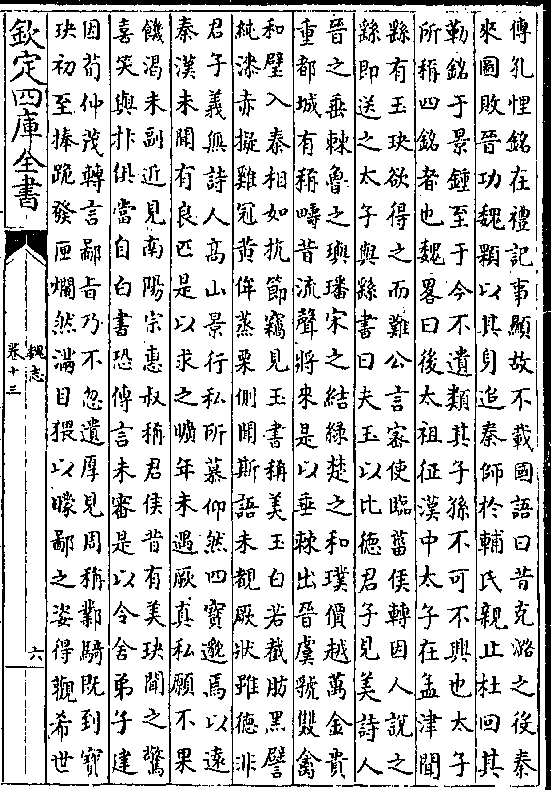 傳孔悝銘在禮記事顯故不載國語曰昔克潞之後秦
來圖敗晉功魏顆以其身追秦師於輔氏親止杜回其
勒銘于景鍾至于今不遺類其子孫不可不興也太子
所稱四銘者也魏畧曰後太祖征漢中太子在孟津聞
繇有玉玦欲得之而難公言密使臨菑侯轉因人說之
繇即送之太子與繇書曰夫玉以比德君子見美詩人
晉之垂棘魯之璵璠宋之結綠楚之和璞價越萬金貴
重都城有稱疇昔流聲將來是以垂棘出晉虞虢雙禽
和璧入秦相如抗節竊見玉書稱美玉白若截肪黑譬
純漆赤擬雞冠黄侔蒸栗側聞斯語未覩厥狀雖德非
君子義無詩人髙山景行私所慕仰然四寳邈焉以遠
秦漢未聞有良匹是以求之曠年未遇厥真私願不果
饑渴未副近見南陽宗惠叔稱君侯昔有美玦聞之驚
喜笑與抃俱當自白書恐傳言未審是以令舍弟子建
因荀仲茂轉言鄙旨乃不忽遺厚見周稱鄴騎既到寳
玦初至捧跪發匣爛然滿目猥以矇鄙之姿得觀希世
欽定四庫全書
魏志
卷十三
六